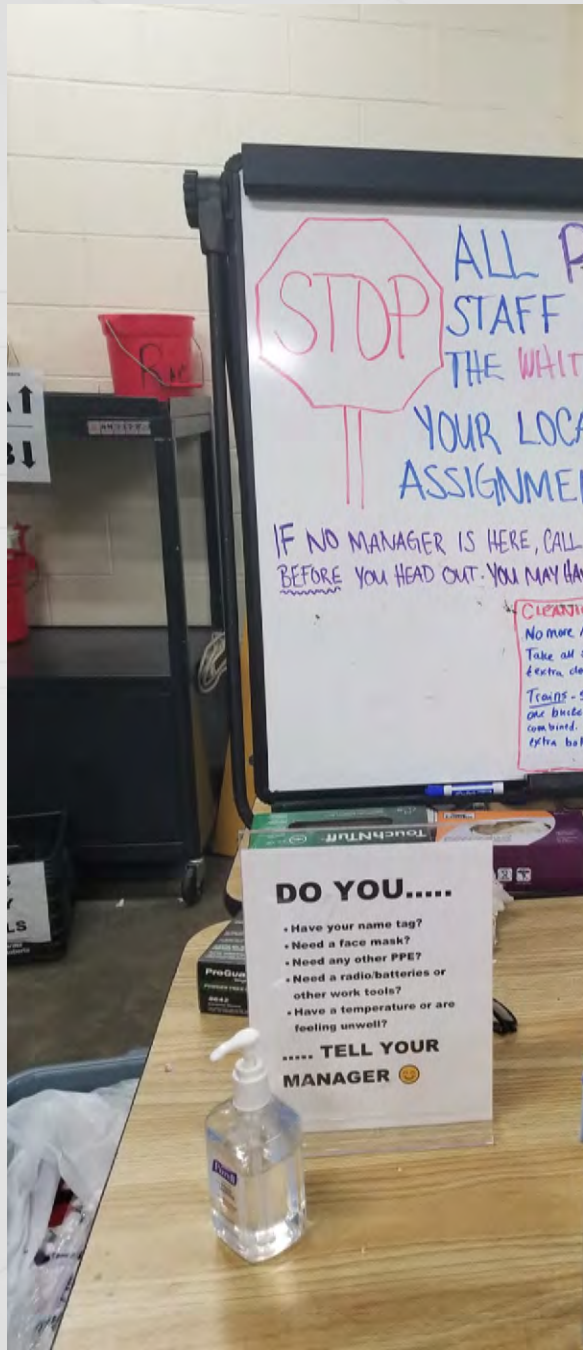 STOP
ALL
STAFF
THE WHIT
YOUR LOCA
ASSIGNMEN
IF NO MANAGER IS HERE, CALL
BEFORE YOU HEAD OUT. YOU MAY HAV
CLEANIN
No more
Take all
Trains -
combined.
TouchNTuff
DO YOU.....
• Have your name tag?
• Need a face mask?
• Need any other PPE?
• Need a radio/batteries or
other work tools?
• Have a temperature or are
feeling unwell?
..... TELL YOUR
MANAGER 😊
ProGua
Purell